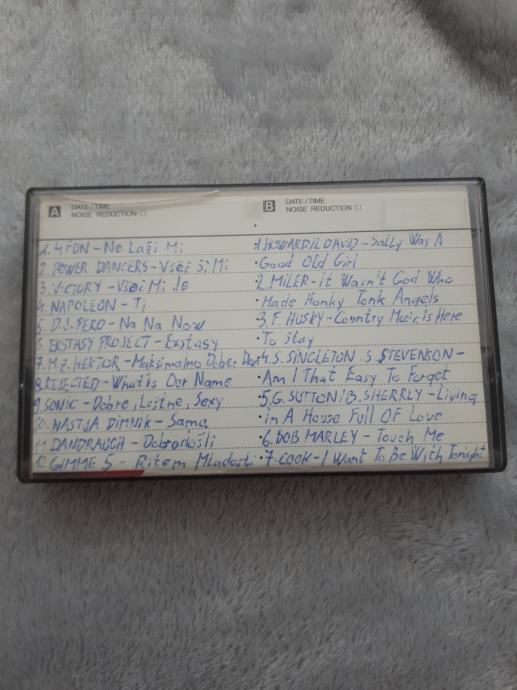 A DATE/TIME
NOISE REDUCTION
B DATE/TIME
NOISE REDUCTION
1. 4 FUN - Ne Laži Mi
2. POWER DANCERS - Všeč Si Mi
3. VICTORY - Všeč Mi Je
4. NAPOLEON - Ti
5. D.J. PERO - Na Na Now
6. EKSTASY PROJECT - Exstasy
7. M.C. HEKTOR - Maksimalno Dober Dan
8. REJECTED - What is Our Name
9. SONIC - Dobre, Luštne, Sexy
10. NASTJA DIMNIK - Sama
11. DANDRAUGH - Dobrodošli
12. GIMME 5 - Ritem Mladosti
1. DAVID - Sally Was A
Good Old Girl
2. MILER - it Wasn't God Who
Made Honky Tonk Angels
3. F. HUSKY - Country Music is Here
To Stay
4. S. SINGLETON S STEVENSON -
Am I That Easy To Forget
5. G. SUTTON B. SHERRLY - Living
in A House Full OF Love
6. BOB MARLEY - Touch Me
7. COOK - I Want To Be With Tonight